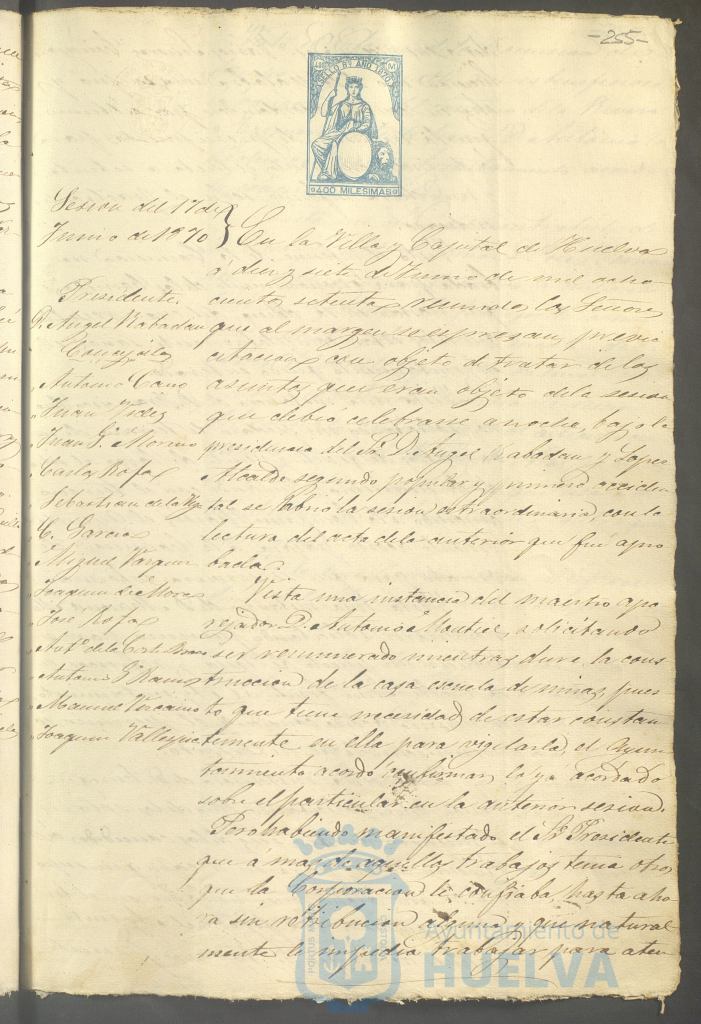 -255-
SELLO 9º AÑO 1870
400 MILESIMAS
Sesion del 17 de
Junio de 1870
Presidente
D. Angel Rabadan
Concejales
Antonio Cano
Juan Vides
Juan G.ª Moreno
Carlos Rofa
Sebastian de la
C. Garcia
Miguel Vazquez
Joaquin
José Rofa
Ant.º de la Corte
Antonio G.ª Ramos
Manuel
Joaquin
En la Villa y Capital de Huelva
á diez y siete de Junio de mil ocho
cientos setenta, reunidos los Señores
que al margen se espresan, previa
citacion, con objeto de tratar de los
asuntos que eran objeto de la sesion
que debió celebrarse anoche, bajo la
presidencia del Sr. D. Angel Rabadan y Lopez
Alcalde segundo popular y primero acciden
tal se abrió la sesion estraordinaria, con la
lectura del acta de la anterior que fué apro
bada.
Vista una instancia del maestro apa
rejador D. Antonio solicitando
ser remunerado mientras dure la cons
truccion de la casa escuela de niñas, pues
to que tiene necesidad de estar constan
temente en ella para vigilarla, el Ayun
tamiento acordó confirmar lo ya acordado
sobre el particular en la anterior sesion.
Pero habiendo manifestado el Sr. Presidente
que á mas de aquellos trabajos tenia otros
que la Corporacion le confiaba, hasta aho
ra sin retribucion alguna y que natural
mente le impedia trabajar para aten
Ayuntamiento de
HUELVA